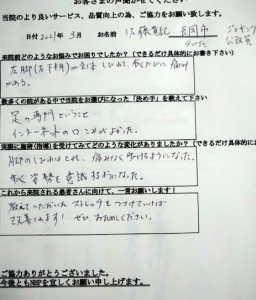 お客さまの声聞かせてください
当院のより良いサービス、品質向上の為、ご協力をお願い致します。
日付 2021年 3月 お名前
来院前どのような悩みでお困りでしたか?(できるだけ具体的にお書き下さい)
左脚(左下半身)が全体 しびれて、
がある。
数多くの院がある中で当院をお選びになった「決め手」を教えて下さい
足の専門ということ
インターネットの口コミがよかった。
実際に施術(指導)を受けてみてどのような変化がありましたか?(できるだけ具体的に
脚のしびれはとれ、痛みなく 歩けるようになった。
歩く姿勢を意識するようになった。
これから来院される患者さんに向けて、一言お願いします!
教えていただいたストレッチをつづけていけば
改善されます! ぜひ、おためしください。
ご協力ありがとうございました。
今後ともNHPを宜しくお願い申し上げます。